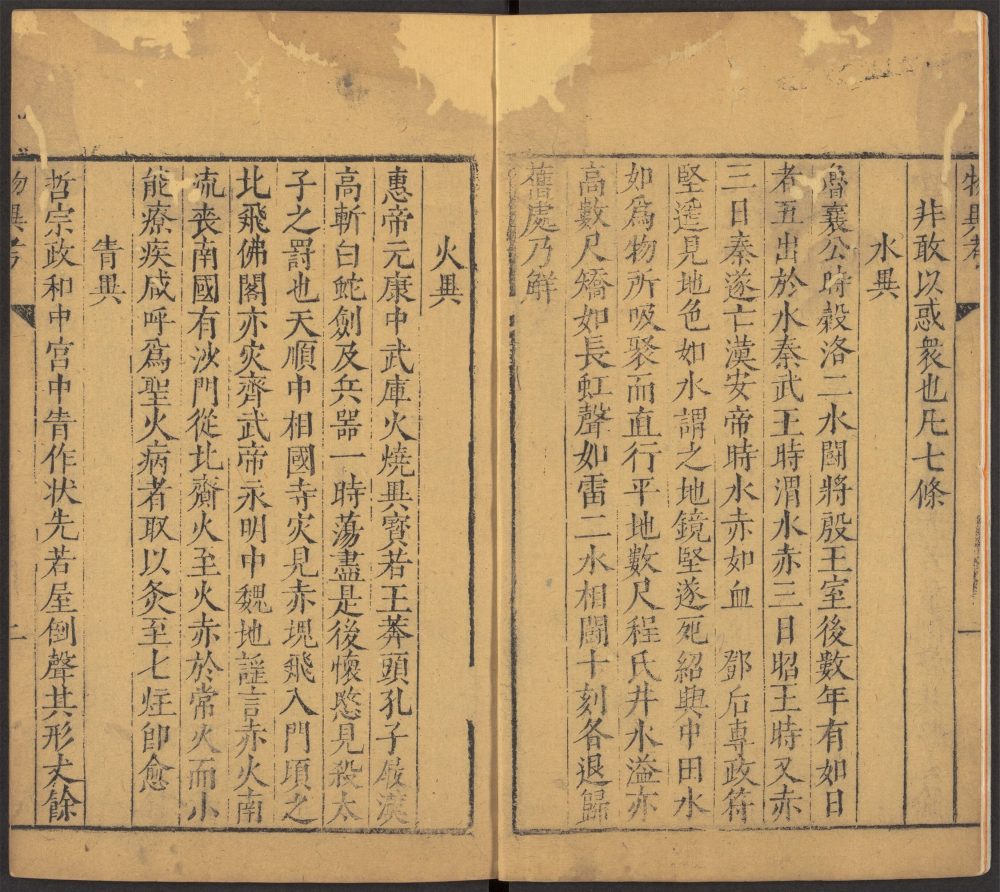 物異考
一
非敢以惑衆也凡七條
水異
魯襄公時穀洛二水鬪將毀王室後數年有如日
者五出於水秦武王時渭水赤三日昭王時又赤
三日秦遂亡漢安帝時水赤如血 鄧后專政符
堅遥見地色如水謂之地鏡堅遂死紹興中田水
如爲物所吸聚而直行平地數尺程氏井水溢亦
高數尺矯如長虹聲如雷二水相鬪十刻各退歸
舊處乃觧
火異
惠帝元康中武庫火燒異寶若王莽頭孔子屐漢
高斬白蛇劍及兵器一時蕩盡是後懷愍見殺太
子之罰也天順中相國寺灾見赤塊飛入門頃之
北飛佛閣亦灾齊武帝永明中魏地謡言赤火南
流丧南國有沙門從北齎火至火赤於常火而小
能療疾咸呼爲聖火病者取以灸至七炷即愈
眚異
哲宗政和中宮中眚作状先若屋倒聲其形丈餘
物異考
二